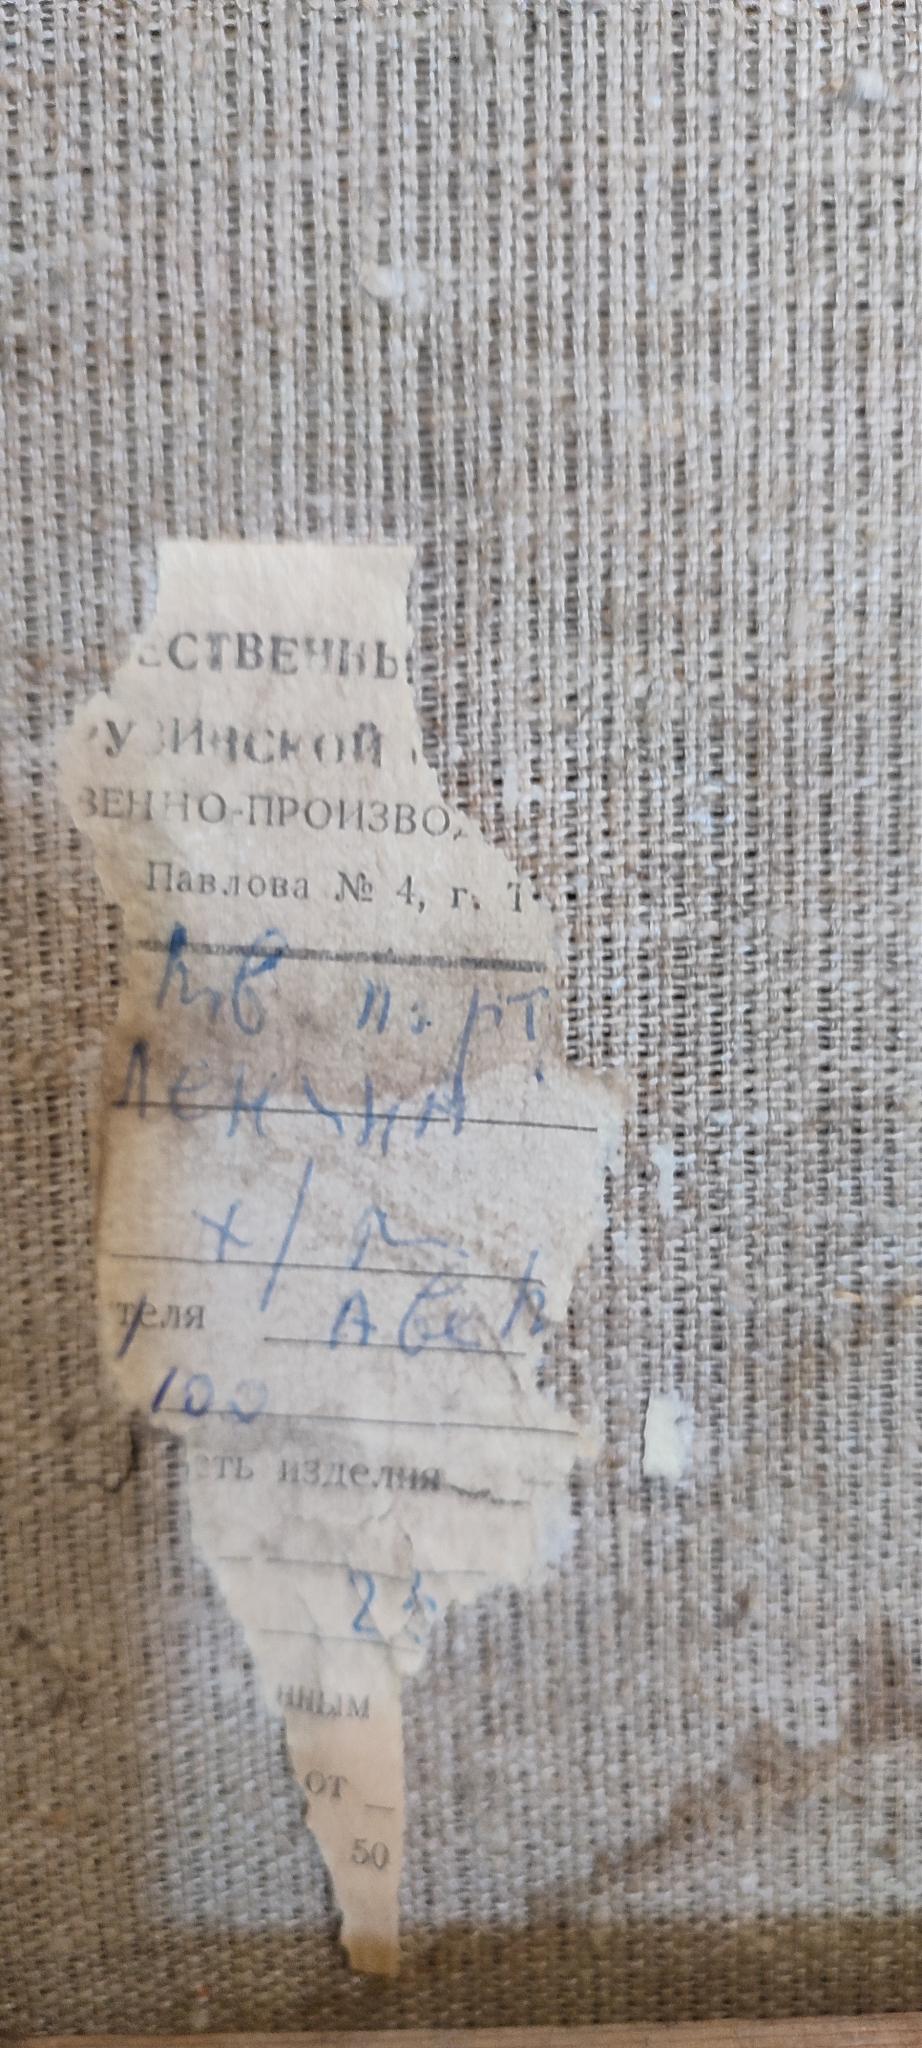 ЕСТВЕННЫ
РУЗИНСКОЙ
ВЕННО-ПРОИЗВОД
Павлова № 4, г. Т
порт
Ленина
х/м
теля Авек
100
сть изделия
2
нным
от
50